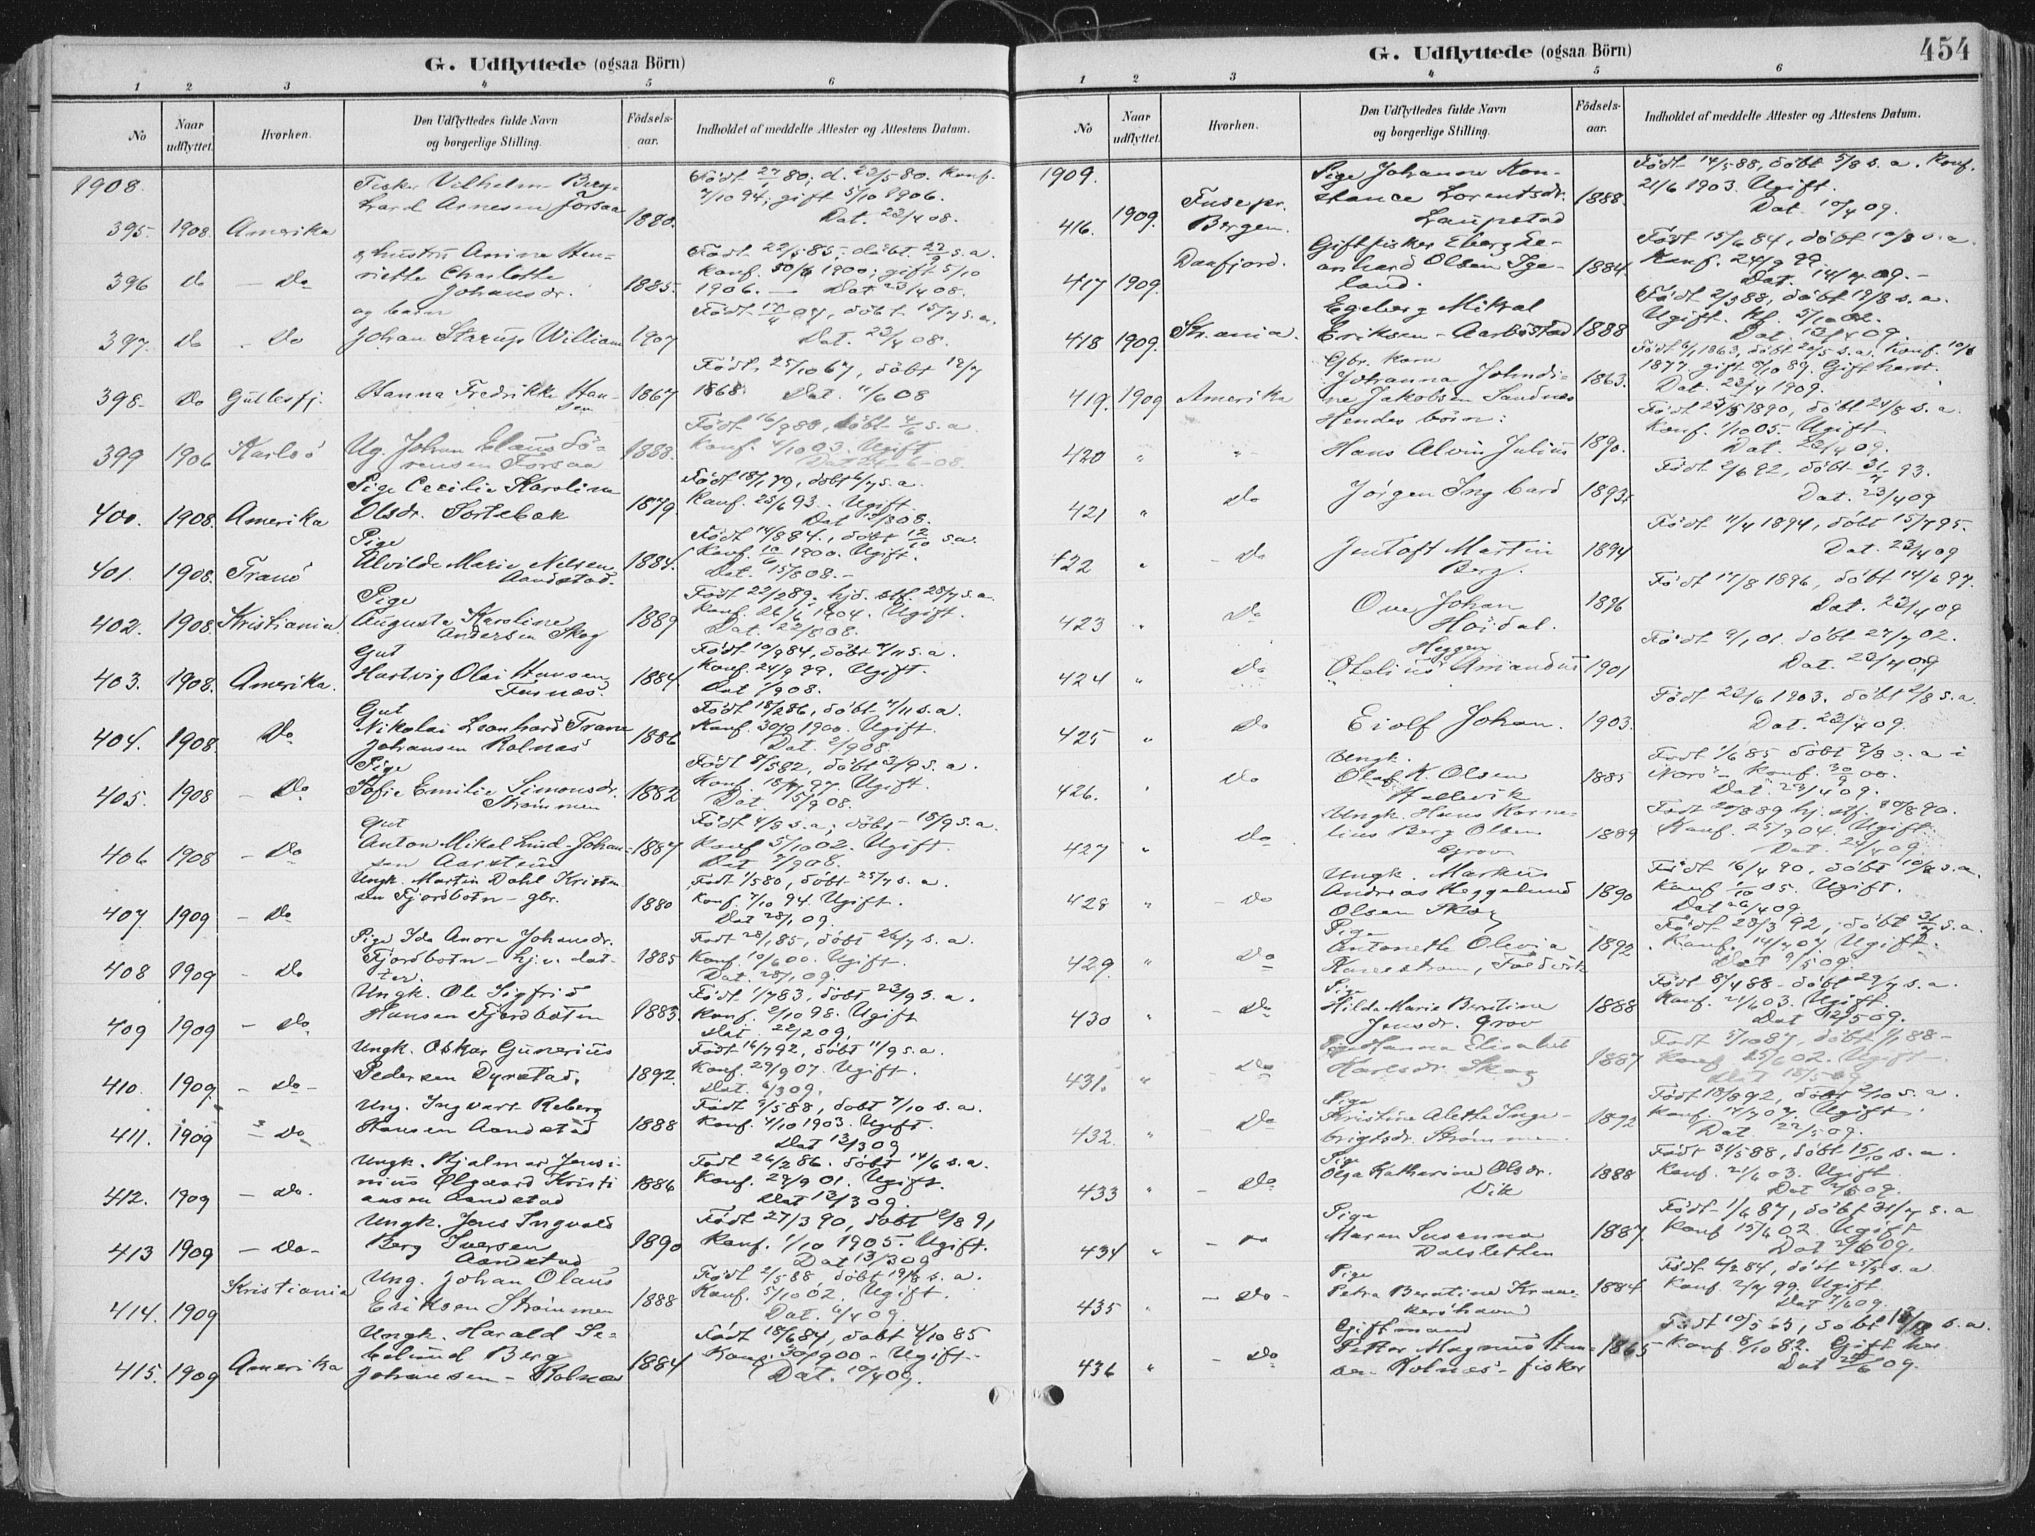 G. Udflyttede (ogsaa Börn)
1 2 3 4 5 6
No
Naar udflyttet.
Hvorhen.
Den Udflyttedes fulde Navn og borgerlige Stilling.
Födsels-aar.
Indholdet af meddelte Attester og Attestens Datum.
1908.
Fisker Vilhelm Berg- Født 27/1 80; d. 23/5 80. Konf.
hard Arnesen Forsaa 4/10 94; gift 5/10 1906.
395. 1908. Amerika 1880. Dat. 23/4 08.
hustru Amine Hen- Født 22/5 85; døbt s.a.
396 do - Do riette Charlotte 1885. 1900; gift 5/10
Johansdr. 1906. - Dat 23/4 08.
og barn Født 07, døbt 15/7 s.a.
397. do - Do Johan Starup William 1907 Dat. 23/4 08.
Født 25/10 67, døbt 12/7
398. Do Gullesfj. Hanna Fredrikke Han- 1867 1868. Dat. 11/6 08
sen
399 1906 Karlsö Ug. Johan Elaus Sö- 1888. Konf. 4/10 03. Ugift
rensen Forsaa Dat 24-6-08.
Pige Cecilie Karoline Født 18/1 79, døbt 6/7 s.a.
400. 1908. Amerika Olsdr. Sortebak 1879 Konf. 25/6 93. Ugift
Dat 12/8 08.
Pige Født 14/8 84., döbt 12/10 s.a.
401. 1908. Tranö Alvilde Marie Nilsen 1884. Konf. 1900. Ugift.
Aandstad. Dat. 15/8 08.-
Pige Født 22/2 89. hjd. stf. 28/7 s.a.
402. 1908. Kristiania. Augusta Karoline 1889 Konf. 26/6 1904. Ugift.
Andersen Skog Dat. 22/8 08.
Gut Født 10/9 84, döbt 4/11 s.a.
403. 1908. Amerika. Hartvig Olai Hansen 1884 Konf. 24/9 99. Ugift.
Fusnæs. Dat 1/9 08.
Gut Født 18/2 86, döbt 4/11 s.a.
404. 1908 Do Nikolai Leonhard Frans 1886 Konf. 30/9 1900. Ugift.
Johansen Rolnæs Dat. 2/9 08
Pige Født 8/5 82, döbt 3/9 s.a.
405. 1908 - Do Sofie Emilie Simonsdr. 1882 97. Ugift.
Strømmen Dat. 15/9 08.
Gut Født 4/8 s.a; döbt 18/9 s.a.
406 1908 - Do Anton Mikal Lind Johan- 1887 Konf 5/10 02. Ugift.
sen Aarstein
Ungk. Martin Dahl Kristen Født 1/5 80, döbt 25/7 s.a.
407 1909 - Do sen Fjordbotn - gbr. 1880 Konf. 7/10 94. Ugift.
Dat 28/1 09.
Pige Ida Anora Johansdr. Født 28/1 85, döbt 26/7 s.a.
408 1909 - Do Fjordbotn - hj.v. dat- 1885 Konf. 10/6 00. Ugift.
ter Dat. 28/1 09.
Ungk. Ole Sigfrid Født. 1/7 83, döbt 23/9 s.a.
409 1909 - Do Hansen Fjordboten 1883. Konf. 2/10 98. Ugift
Dat. 22/2 09.
Ungk. Oskar Gunerius Født 16/7 92, döbt 11/9 s.a.
410. 1909 - Do - Pedersen Dyrstad, 1892. Konf 29/9 07. Ugift.
Dat. 6/3 09.
Ung. Ingvart Reberg Født 9/5 88, döbt 7/10 s.a.
411. 1909 - Do Hansen Aandstad 1888 Konf. 4/10 1903. Ugift.
Dat 13/3 09
Ungk. Hjalmar Jensi- Født 26/2 86. döbt 14/6 s.a.
412. 1909 - Do. nius Ølgaard Kristi 1886 Konf. 29/9 01. Ugift.
ansen Aandstad Dat 13/3 09
Ungk. Jens Ingvald Født 27/3 90, döbt 2/8 91
413 1909 - Do - Berg Iversen 1890 Konf. 1/10 1905 - Ugift.
Aandstad Dat 13/3 09
Kristiania Ung. Johan Olaus Født 2/5 88, döbt 19/8 s.a.
414. 1909 Eriksen Strømmen 1888 Konf. 5/10 02. Ugift.
Dat. 6/4 09.
Ungk. Harald Se- Født 18/6 84, döbt 4/10 85
415. 1909 Amerika Berg 1884 Konf. 30/9 00 - Ugift -
Johansen - Rolnæs Dat. 10/4 09.
G. Udflyttede (ogsaa Börn)
454
1 2 3 4 5 6
No
Naar udflyttet.
Hvorhen.
Den Udflyttedes fulde Navn og borgerlige Stilling.
Födsels-aar.
Indholdet af meddelte Attester og Attestens Datum.
1909.
Pige Johanne Kon- Født 14/5 88, döbt 5/8 s.a. Konf.
416. 1909. Fuse pr. stance Lorentsdr. 1888. 21/6 1903. Ugift.
Bergen. Laupstad Dat. 10/4 09.
Gift fisker Eberg Le- Født 15/6 84, döbt 10/8 s.a.
417 1909. Daafjord. onhard Olsen Ige- 1884. Konf. 24/9 99.
land. Dat. 14/4 09.-
Egeberg Mikal Født 2/5 88, döbt 19/8 s.a.
418 1909. Kr.ania. Eriksen - Aarböstad 1888 Ugift. Kf. 5/10 02.
Dat 13/4 09.
Gbr. kone Født 6/1 1863, döbt 20/5 s.a. Konf.
419. 1909 Amerika Johanna Johndi- 1863. 1877 gift 8/10 89. Gift
ne Jakobsen Sandnæs Dat. 23/4 1909.
Hendes börn: Født 1890, döbt 24/8 s.a.
Konf. 1/10 05 Ugift
420 " " Hans Alvin Julius 1890. Dat. 23/4 09.
Født 2/6 92, döbt 93.
421 " do Jørgen Ingbard 1893. Dat. 23/4 09
Født 11/4 1894, döbt 15/7 95.
422 " - Do Justoft Martin 1894 Dat. 23/4 09
Berg.
Født 17/8 1896, döbt 14/6 97.
423 " Do Ove Johan 1896 Dat. 23/4 09
Høidal.
Heggen Født 9/1 01. döbt 27/7 02.
424 " Do Otelius Amandus 1901 Dat. 23/4 09
Født 22/6 1903. döbt 2/8 s.a.
425 " Do Eiolf Johan. 1903. Dat. 23/4 09.
Ungk. Født 1/6 85 döbt 9/8 s.a i
426. " Do Olaf K. Olsen 1885 Konf. 30/9 00.
Hallevik Dat. 23/4 09.
Ungk. Hans Korne- Født 20/8 89 hj. stf. 90.
427 " Do lius Berg Olsen 1889 Konf. 25/9 04. Ugift
Grov Dat. 24/4 09.
Ungk. Markus Født 16/4 90, döbt 10/8 s.a.
428 " - Do Andreas Heggelund 1890 Konf 1/10 05. Ugift.
Olsen Skog Dat 26/4 09
Pige Født 28/3 92, döbt s.a.
429. " Do Antonette Olevia 1892 Konf. 14/7 07. Ugift.
Kanestrøm, Foldvik Dat 9/5 09.
Pige Født 8/4 88 - döbt 29/7 s.a.
430 " - Do Hilda Marie Berntine 1888 Konf. 21/6 03. Ugift.
Jensdr. Grov Dat 12/5 09.
Pige Hanna Elisabet Født 5/10 87, döbt 1/1 88 -
431. " Do Karlsdr. Skog 1887 Konf. 02. Ugift -
Dat 18/5 09
Pige Født 18/8 92, döbt 2/10 s.a.
432. " - Do Kristine Alethe Inge- 1892 Konf. 14/7 07. Ugift.
brigtsdr. Strømmen. Dat. 22/5 09.
Pige Født 31/5 88, döbt s.a.
433 " - Do Olga Katherine Olsdr. 1888 Konf. 21/6 03. Ugift
Vik Dat 2/6 09.
Pige Født 1/6 87, döbt 31/7 s.a.
434 " - Do Maren Susanna 1887 Konf 15/6 02. Ugift
Dalsletten Dat 2/6 09.
Pige Født 6/2 84, döbt s.a.
435 " - Do - Petra Berntine 1884 Konf. 2/7 99. Ugift
Dat 7/6 09.
Gift mand Født 10/5 65, döbt s.a.
436 " - Do Petter Magnus Han- 1865 Konf. 8/10 82. Gift her
sen Rolnæs - fisker Dat 09.